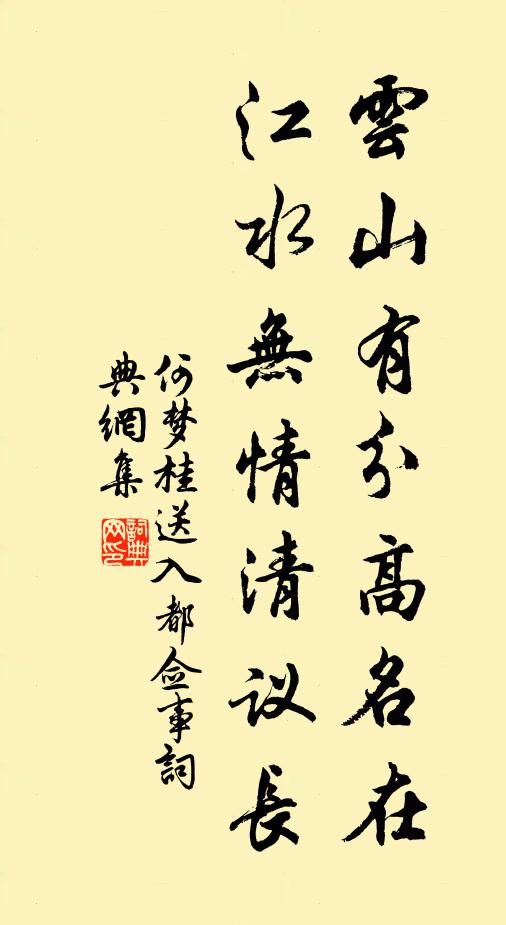 雲山有分高名在
江水無情清议長
何梦桂送入都佥事詞
典網集
詞典網印